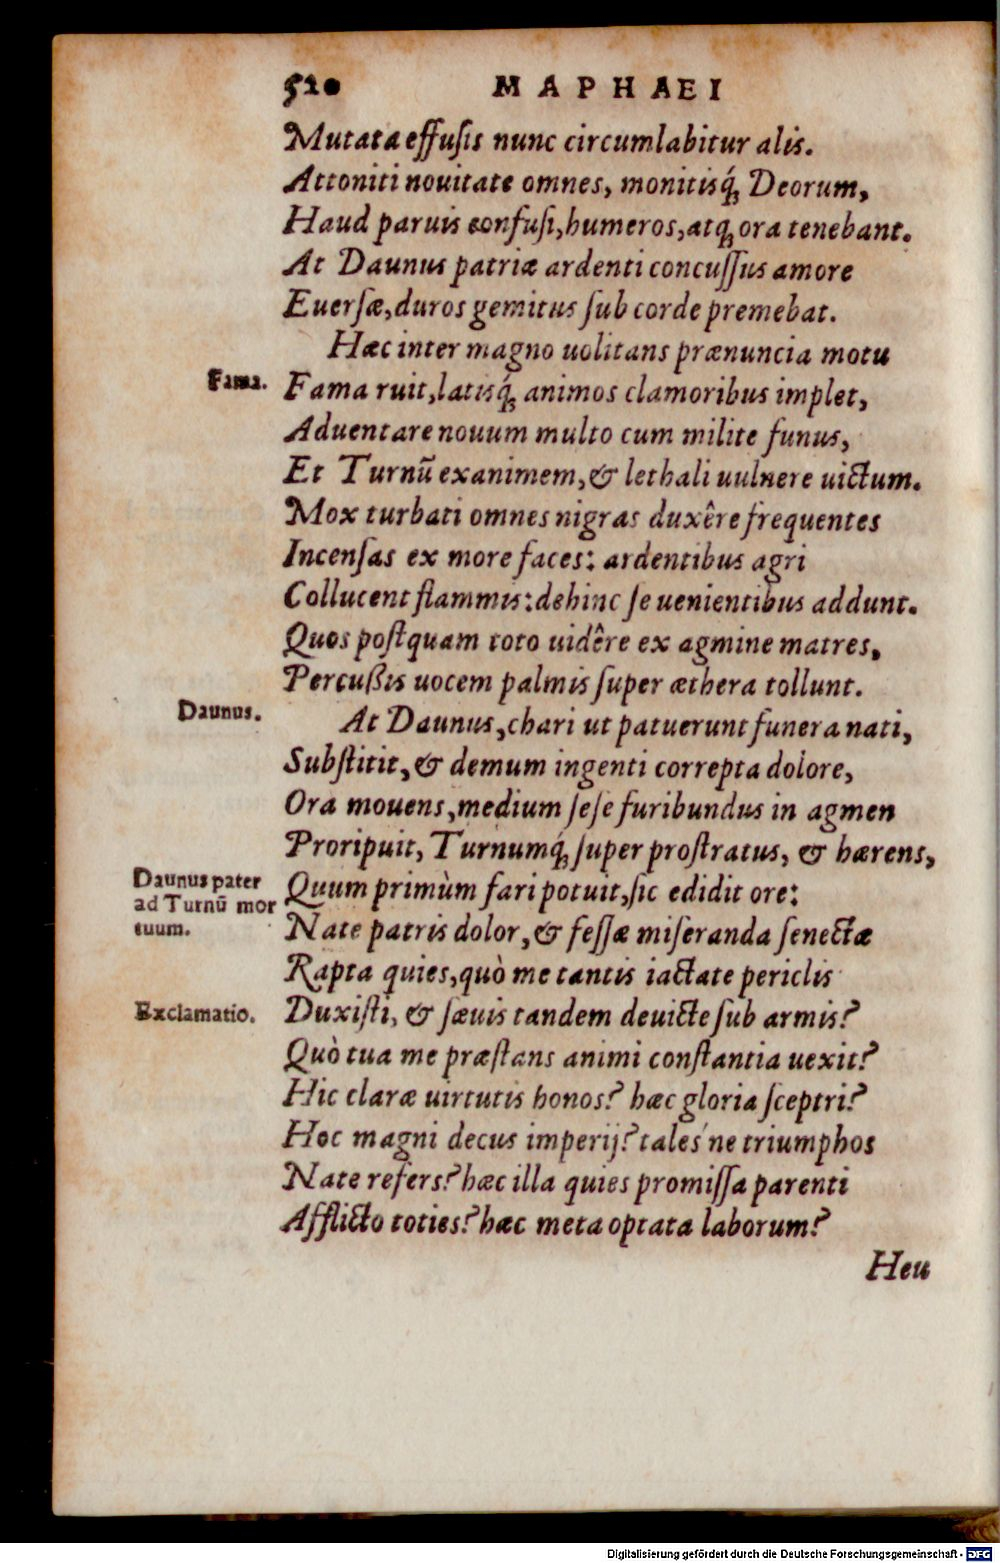 520 MAPHAEI
Mutata effuſis nunc circumlabitur alis.
Attoniti nouitate omnes, monitisq́; Deorum,
Haud paruis confuſi, humeros, atq; ora tenebant.
At Daunus patriæ ardenti concuſſus amore
Euerſæ, duros gemitus ſub corde premebat.
Hæc inter magno uolitans prænuncia motu
Fama.
Fama ruit, latisq́; animos clamoribus implet,
Aduentare nouum multo cum milite funus,
Et Turnũ exanimem, & lethali uulnere uictum.
Mox turbati omnes nigras duxêre frequentes
Incenſas ex more faces: ardentibus agri
Collucent flammis: dehinc ſe uenientibus addunt.
Quos poſtquam toto uidêre ex agmine matres,
Percußis uocem palmis ſuper æthera tollunt.
Daunus.
At Daunus, chari ut patuerunt funera nati,
Subſtitit, & demum ingenti correpta dolore,
Ora mouens, medium ſeſe furibundus in agmen
Proripuit, Turnumq́; ſuper proſtratus, & hærens,
Daunus pater
ad Turnũ mor
tuum.
Quum primùm fari potuit, ſic edidit ore:
Nate patris dolor, & feſſæ miſeranda ſenectæ
Rapta quies, quò me tantis iactate periclis
Exclamatio.
Duxiſti, & ſæuis tandem deuicte ſub armis?
Quò tua me præſtans animi conſtantia uexit?
Hic claræ uirtutis honos? hæc gloria ſceptri?
Hoc magni decus imperij? tales'ne triumphos
Nate refers? hæc illa quies promiſſa parenti
Afflicto toties? hæc meta optata laborum?
Heu
Digitalisierung gefördert durch die Deutsche Forschungsgemeinschaft - DFG